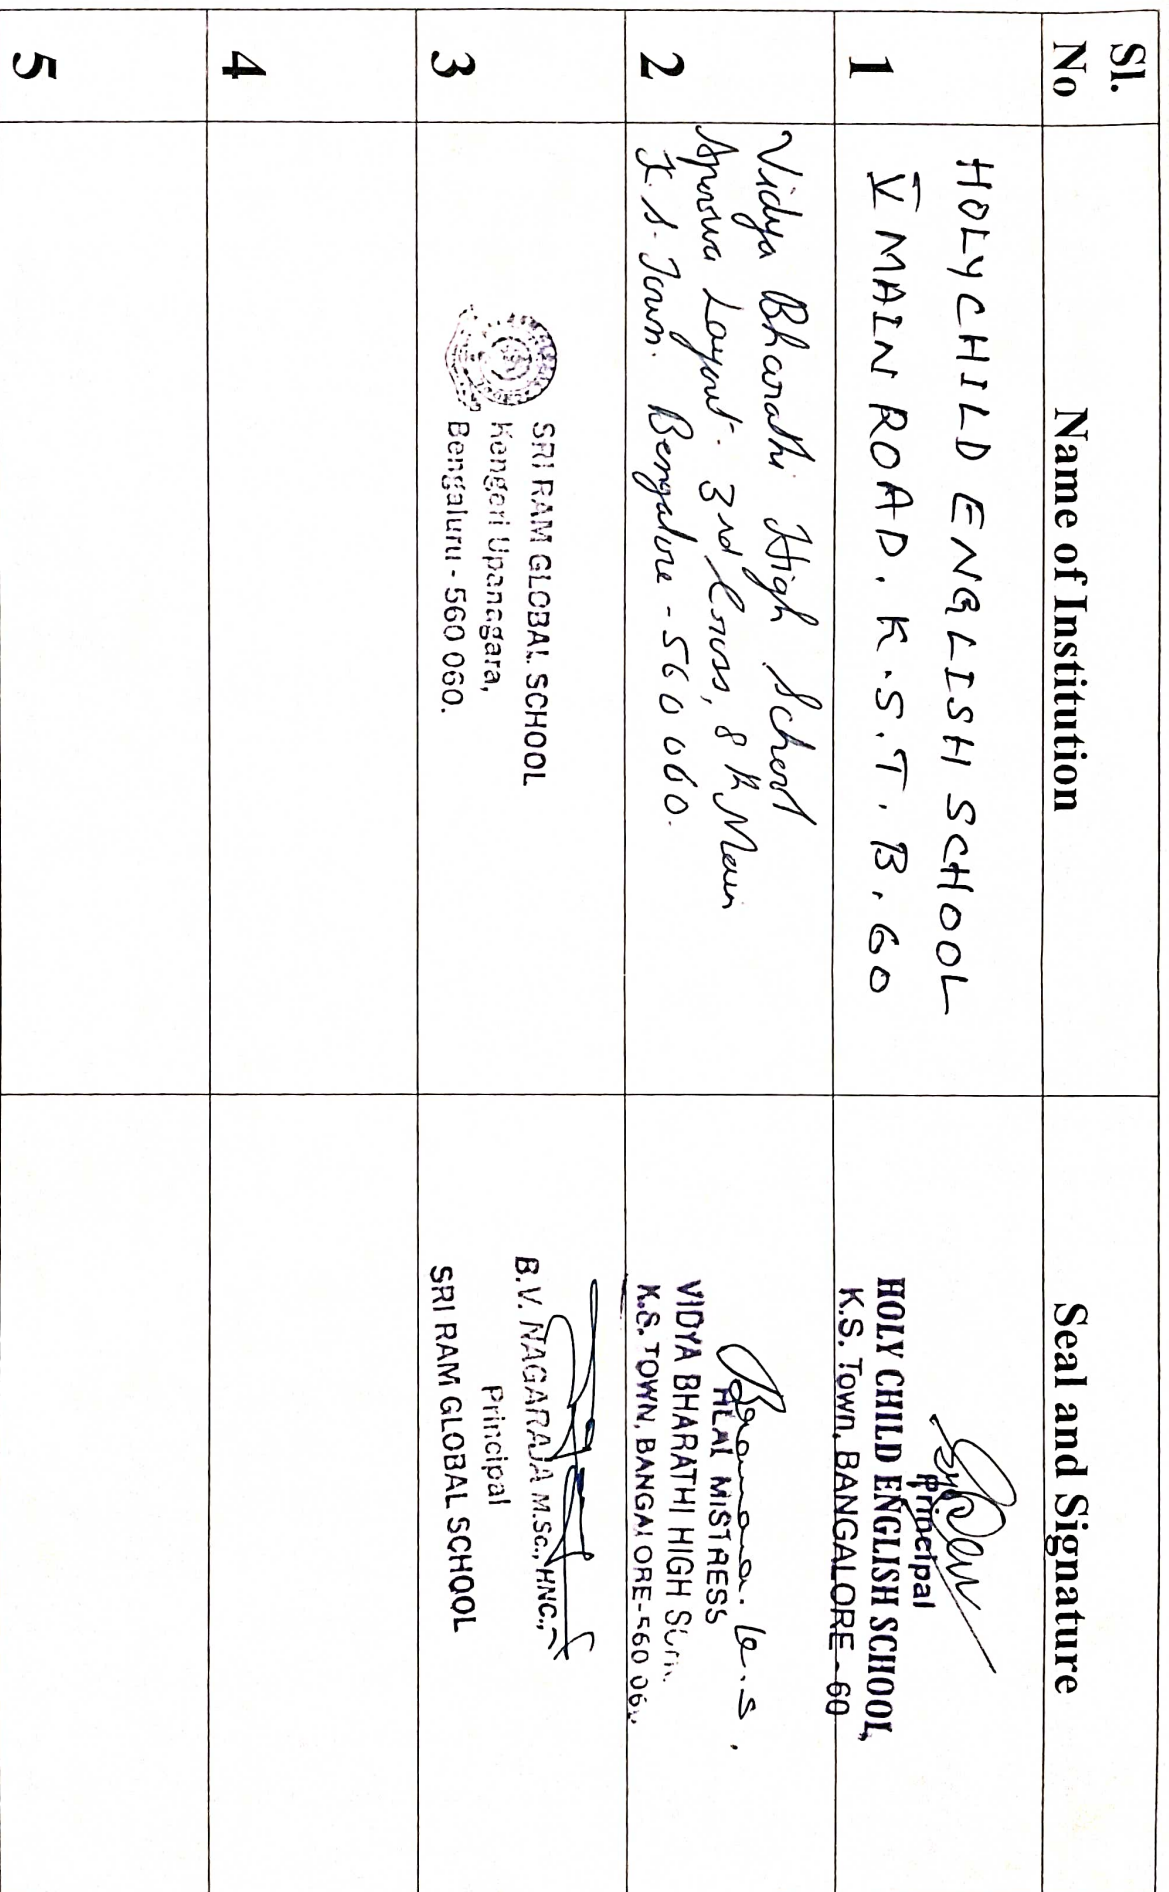 Sl.
No
Name of Institution
Seal and Signature
1
HOLYCHILD ENGLISH SCHOOL
V MAIN ROAD. K.S.T. B. 60
Principal
HOLY CHILD ENGLISH SCHOOL,
K.S. Town, BANGALORE-60
2
Vidya Bharathi High School
Apoorva Layout. 3rd Cross, 8th Main
K.S. Town. Bengalore - 560060.
MISTRESS
VIDYA BHARATHI HIGH
K.S. TOWN, BANGALORE-560 060
3
SRI RAM GLOBAL SCHOOL
Kengeri Upanagara,
Bengaluru - 560 060.
B.V. NAGARAJA M.Sc., HNC.,
Principal
SRI RAM GLOBAL SCHOOL
4
5